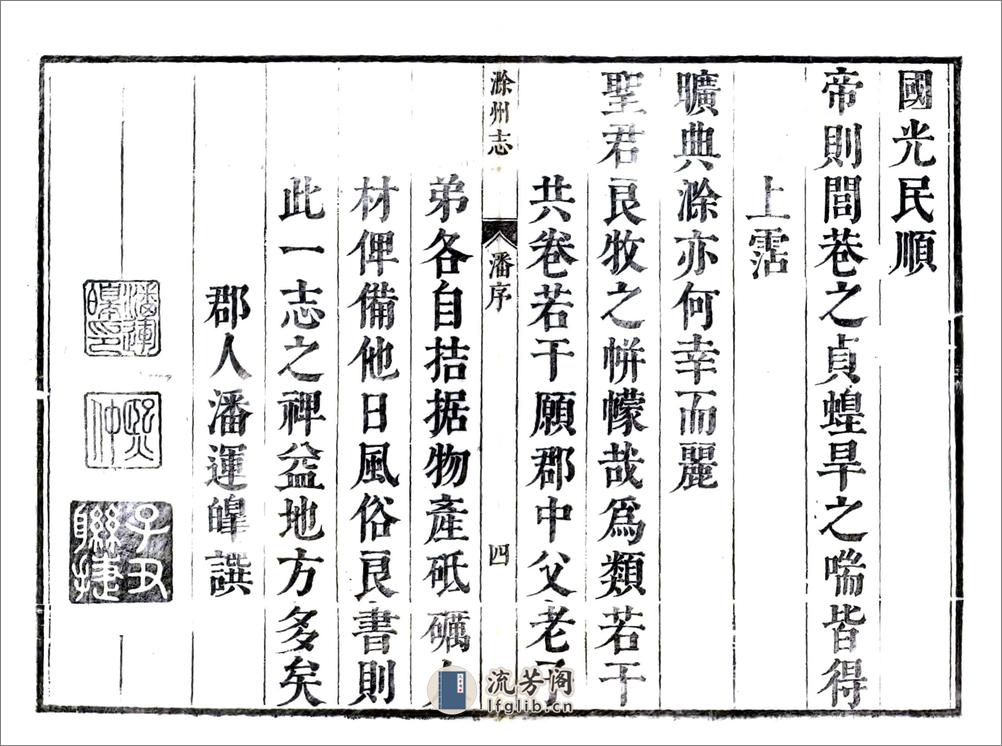 國光民順
帝則閭巷之貞蝗旱之喘皆得
上霑
曠典滁亦何幸而麗
聖君良牧之帡幪哉爲類若干
共卷若干願郡中父老子
滁州志
潘序
四
弟各自拮据物產砥礪
材俾備他日風俗良書則
此一志之裨益地方多矣
郡人潘運皥譔
潘運皥印
仲
子丑聯捷
流芳阁
lfglib.cn